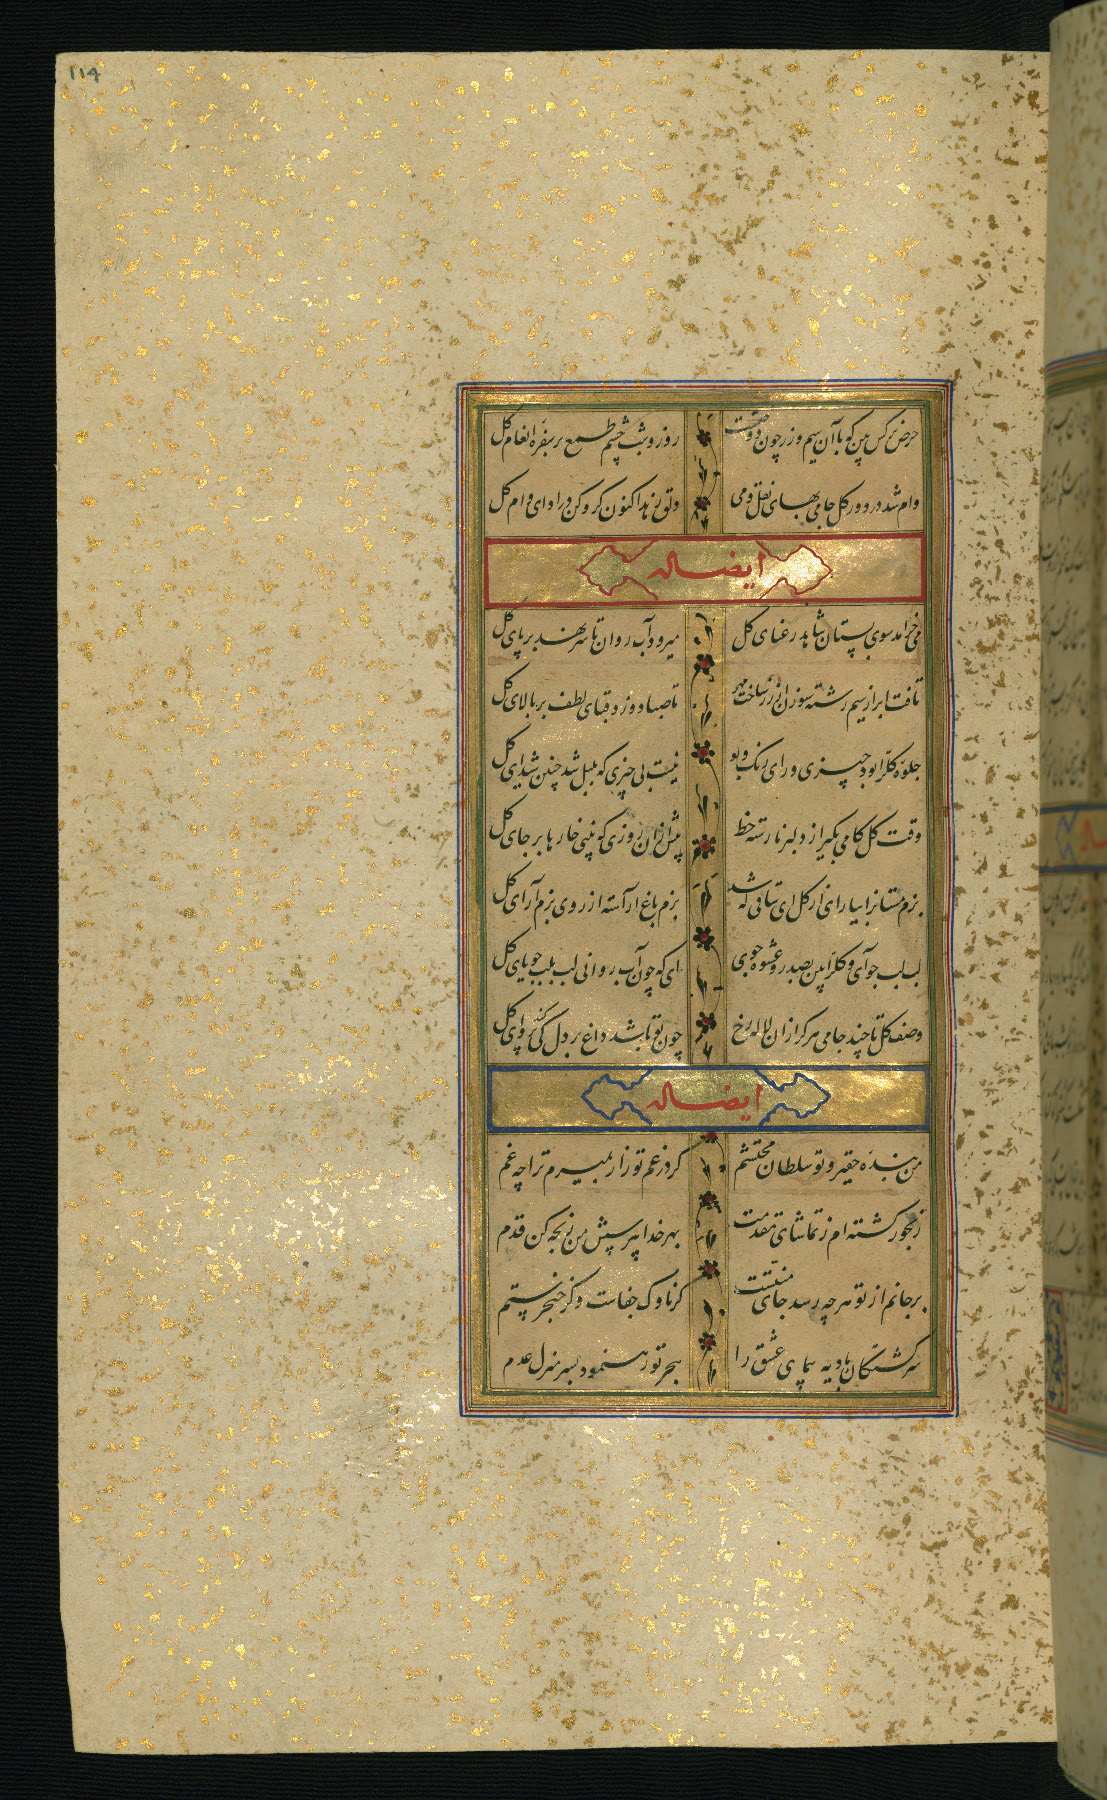 114
حرض نرکس بین که با آن سیم و زر چون دوخت روز و شب چشم طمع بر سفره انعام گل
وام شد در دور گل جامی بهای نقل و می دلق زهد اکنون گرو کن در ادای وام گل
ایضا له
می خرامد سوی بستان شاهد رعنای گل میرود آب روان تا سر نهد بر پای گل
تافت ابر از سیم رشته سوزن از زر ساخت مهر تا صبا دوزد قبای لطف بر بالای گل
جلوه گل را بود چیزی ورای رنگ و بو نیست بی چیزی که بلبل شد چنین شیدای گل
وقت گل کامی بگیر از دلبر نارسته خط پیش ازان روزی که بینی خارها بر جای گل
بزم مستانرا بیارای از گل ای ساقی که شد بزم باغ آراسته از روی بزم آرای گل
لب لب جو آی و گل را بین بصد رو عشوه جوی ای که چون آب روانی لب بلب جویای گل
وصف گل تا چند جامی هرکرا زان لاله رخ چون تو باشد داغ بر دل کی کند پروای گل
ایضا له
من بنده حقیر و تو سلطان محتشم گر در غم تو زار بمیرم ترا چه غم
رنجور گشته ام ز تماشای مقدمت بهر خدا بپرسش من رنجه کن قدم
بر جانم از تو هر چه رسد جای منتست گر ناوک جفاست وگر خنجر ستم
سرگشتگان بادیه پیمای عشق را هجر تو رهنمود بسر منزل عدم